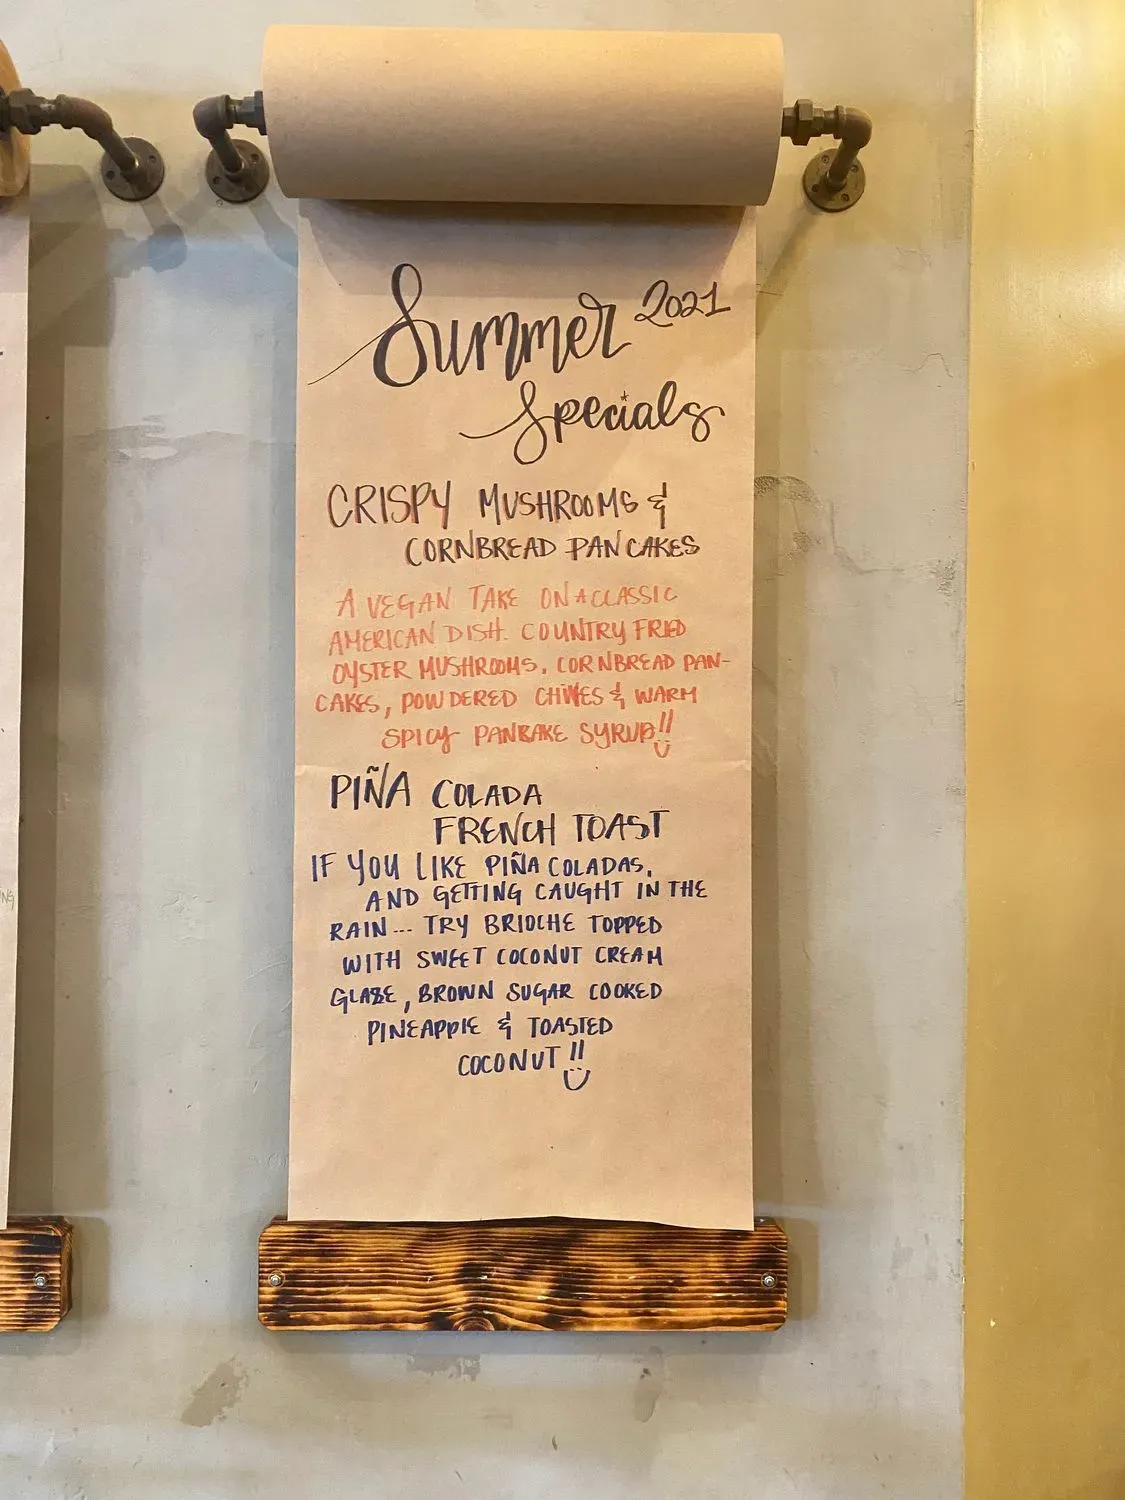 Summer 2021
Specials
CRISPY MUSHROOMS &
CORNBREAD PANCAKES
A VEGAN TAKE ON A CLASSIC
AMERICAN DISH. COUNTRY FRIED
OYSTER MUSHROOMS, CORNBREAD PAN-
CAKES, POWDERED CHIVES & WARM
SPICY PANCAKE SYRUP!!
PIÑA COLADA
FRENCH TOAST
IF YOU LIKE PIÑA COLADAS,
AND GETTING CAUGHT IN THE
RAIN... TRY BRIOCHE TOPPED
WITH SWEET COCONUT CREAM
GLAZE, BROWN SUGAR COOKED
PINEAPPLE & TOASTED
COCONUT!!